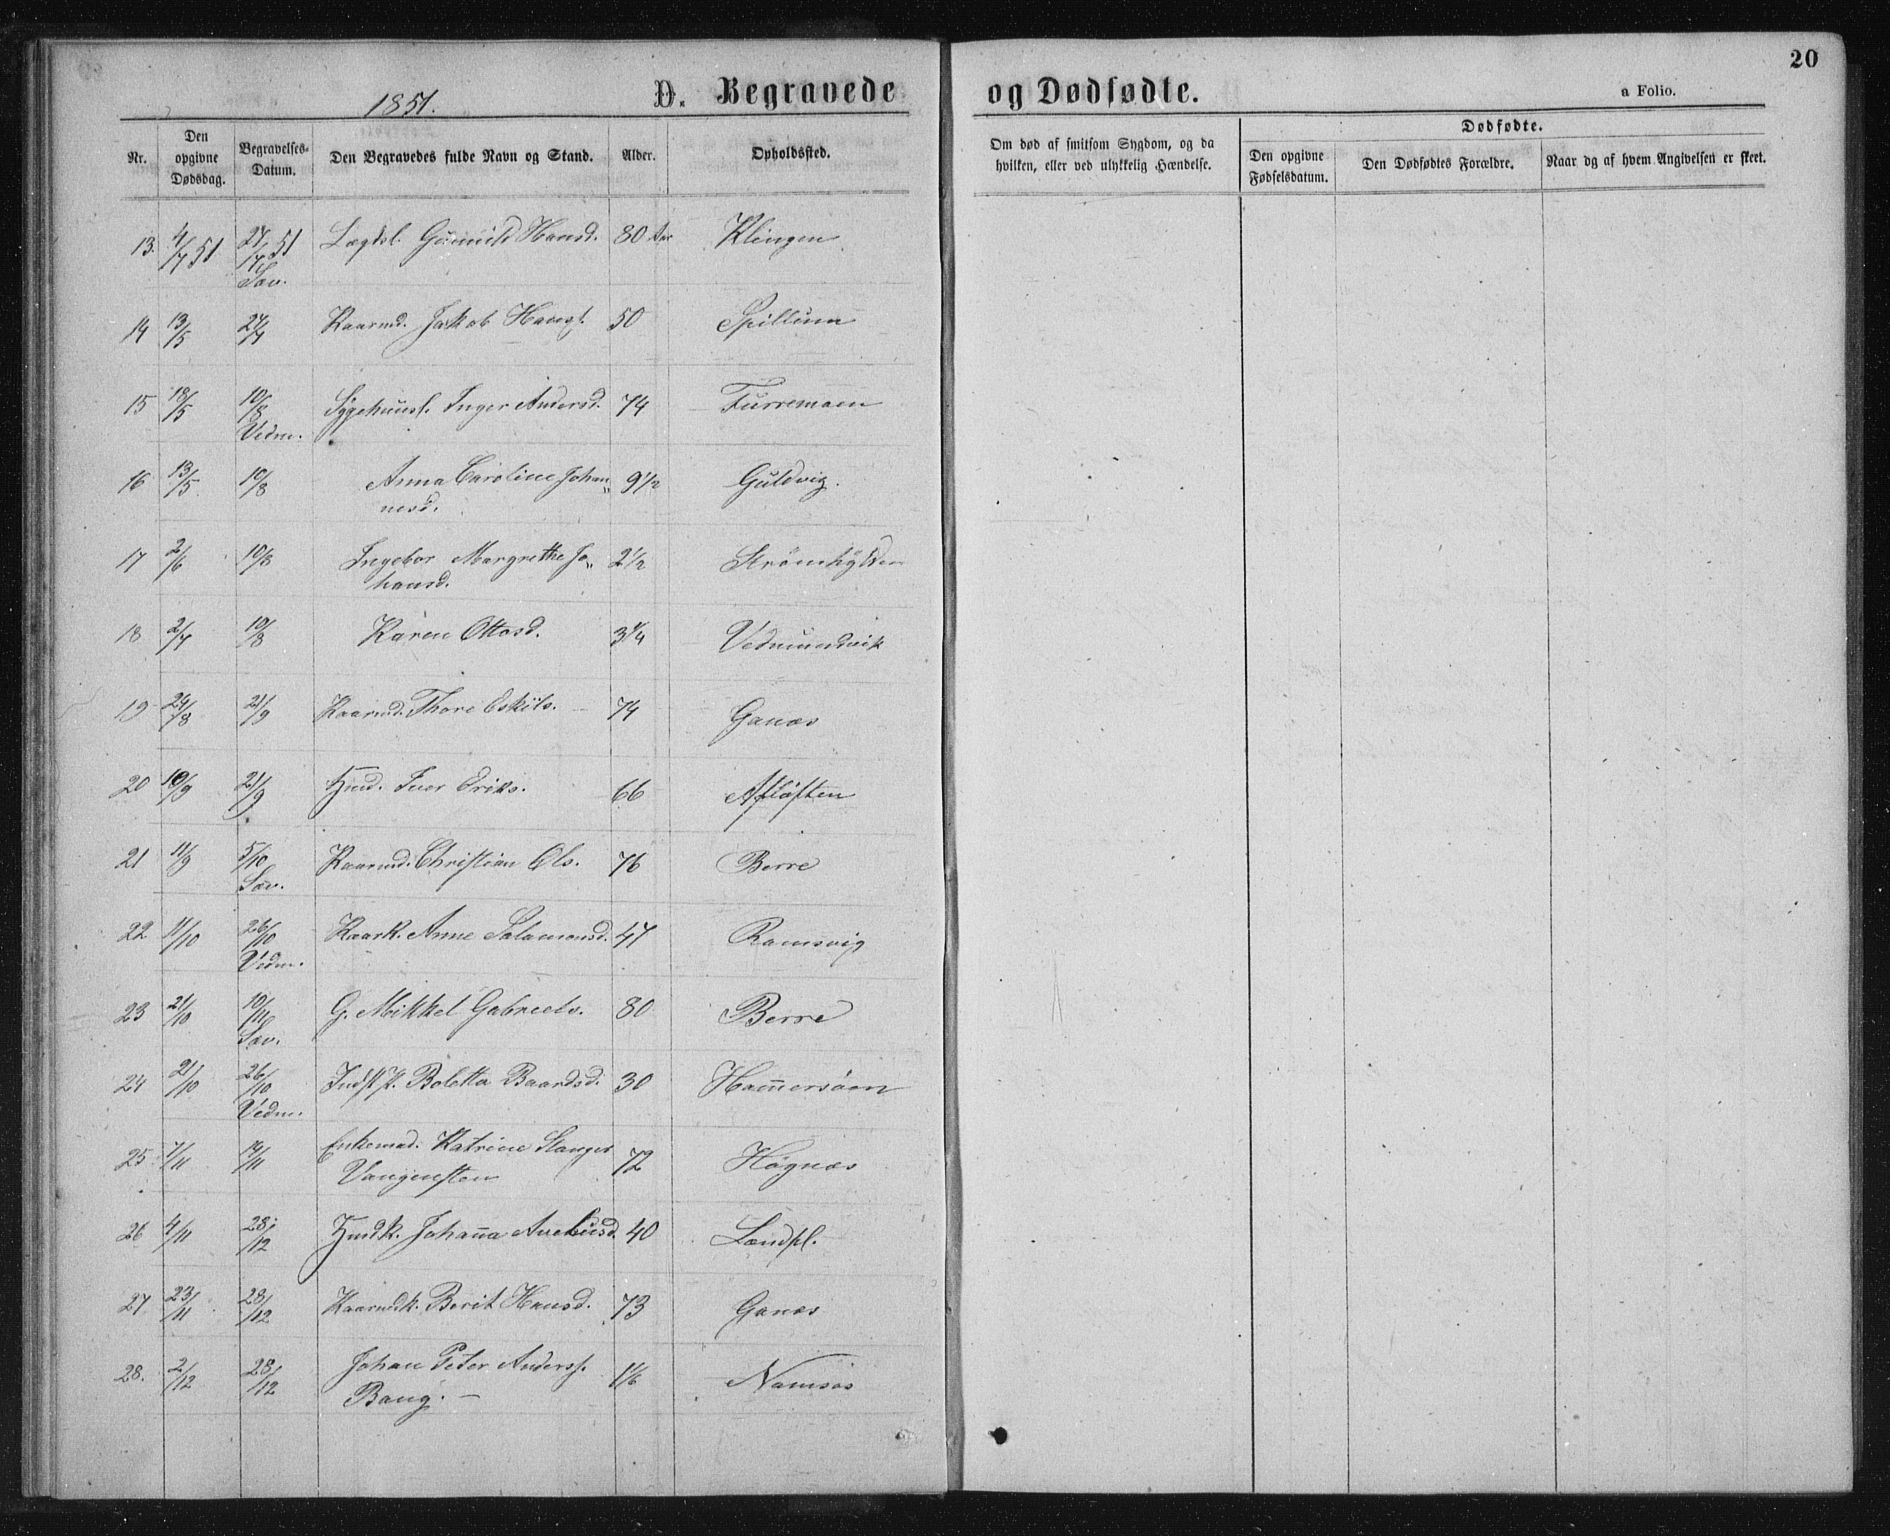 20
1851. D. Begravede og Dødfødte. a Folio.
Nr. Den opgivne Dødsdag. Begravelses-Datum. Den Begravedes fulde Navn og Stand. Alder. Opholdssted. Om død af smitsom Sygdom, og da hvilken, eller ved ulykkelig Hændelse. Dødfødte. Den opgivne Fødselsdatum. Den Dødfødtes Forældre. Naar og af hvem Angivelsen er skeet.
13. 4/7 51 27/7 51 Lægdsl. Gunnild Hansd. 80 Aar Klingen
Sæv.
14 13/5 27/7 Kaarmd. Jakob Hansf. 50 Spillum
15 18/5 10/8 Inger Andersd. 74 Furremoen
Vedm.
16 13/5 10/8 Anna Caroline Johan„ 9 1/2 Guldvig.
nesd.
17 2/6 10/8 Ingebor Margrethe Jo„ 2 1/2 Strømhylden
hansd.
18 2/7 10/8 Karen Ottosd. 3 1/4 Vedmundvik
19 24/8 21/9 Kaarmd. Thore Eskils. 74 Ganæs
20 10/9 21/9 Hmd. Iver Eriks. 66 Afløften
21 11/9 5/10 Kaarmd. Christian Ols. 76 Berre
Sæv.
22 11/10 26/10 Kaark. Anne Salamonsd. 47 Ramsvig
Vedm.
23 21/10 10/11 G. Mikkel Gabriels. 80 Berre
Sæv.
24 2/10 26/10 Boletta Baardsd. 30 Hammersøen
Vedm.
25 7/11 14/11 Enkemad. Katrine Stanger 72 Høgnæs
Vangensten
26 4/11 28/12 Hmdk. Johanna 40
27 23/11 28/12 Kaarmdk. Berit Hansd. 73 Ganæs
28. 2/12 28/12 Johan Peter Andersf. 1/6 Namsos
Bang. —